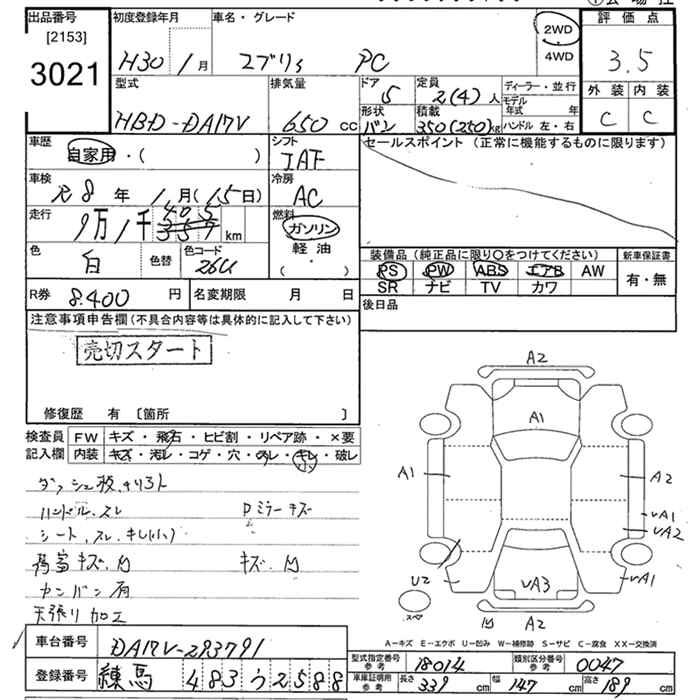 出品番号 初度登録年月 車名・グレード 2WD 評価点
[2153] H30年 1月 エブリィ PC 4WD 3.5
3021 型式 排気量 ドア 定員 ディーラー・並行 外装 内装
HBD-DA17V 650cc 5 2(4)人 モデル年式 年 C C
形状 積載
バン 350(250)kg ハンドル 左・右
車歴 シフト セールスポイント (正常に機能するものに限ります)
自家用・( ) IAT
車検 冷房
R8年 1月(15日) AC
走行 燃料
9万1千405km ガソリン
軽油
・( )
色 色替 色コード 装備品 (純正品に限り○をつけてください) 新車保証書
白 26U PS PW ABS エアB AW 有・無
SR ナビ TV カワ
R券 8.400円 名変期限 月 日 後日品
注意事項申告欄(不具合内容等は具体的に記入して下さい)
売切スタート
修復歴 有 〔箇所 〕
検査員 FW キズ・飛石・ヒビ割・リペア跡・×要
記入欄 内装 キズ・汚レ・コゲ・穴・スレ・キレ・破レ
ハンドル、スレ Dミラーキズ
シート、スレ、キレ(小)
荷室キズ、凹 キズ、凹
カンバン有
天張り加工
A2
A1
A1 A2
UA1
UA2
U2 UA3 UA1
スペア
凹 A2
A-キズ E-エクボ U-凹み W-補修跡 S-サビ C-腐食 XX-交換済
車台番号 DA17V-283791
登録番号 練馬 483う2588
型式指定番号 参考 18014 類別区分番号 参考 0047
車庫証明用 参考 長さ 339cm 幅 147cm 高さ 189cm